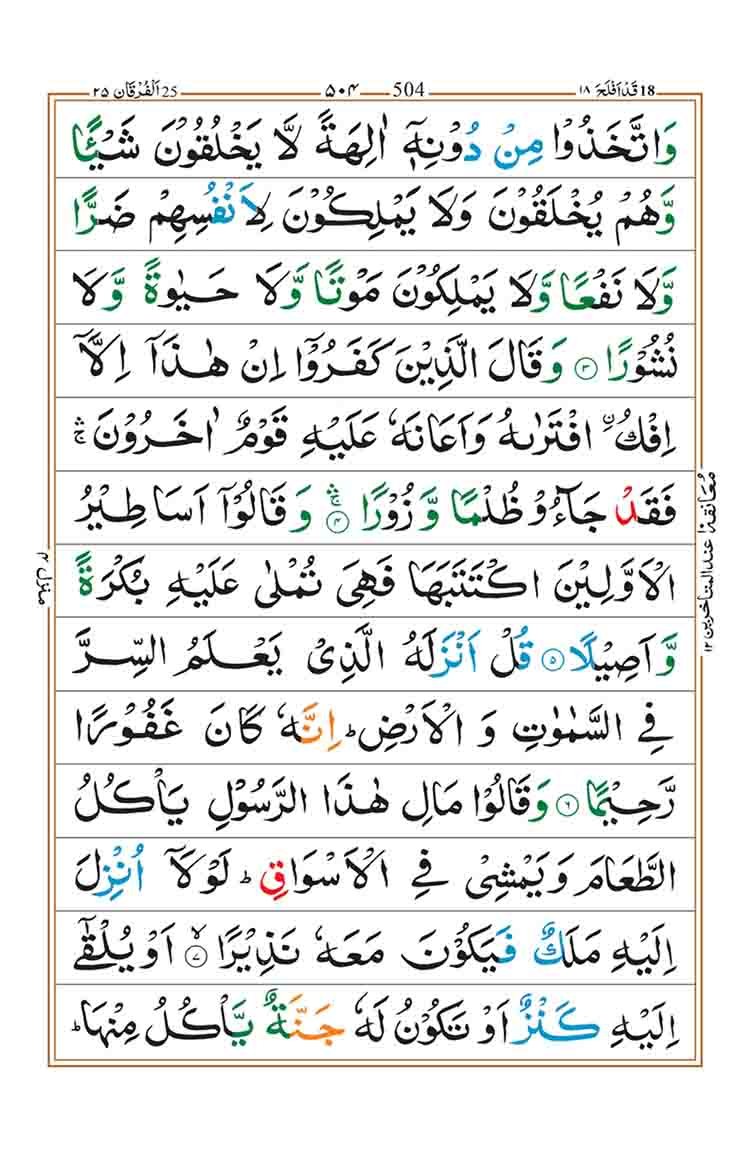 18 قَدْ اَفْلَحَ ۱۸ 504 ۵۰۴ 25 اَلْفُرْقَان ۲۵
وَاتَّخَذُوْا مِنْ دُوْنِهٖۤ اٰلِهَةً لَّا يَخْلُقُوْنَ شَيْـًٔا
وَّهُمْ يُخْلَقُوْنَ وَلَا يَمْلِكُوْنَ لِاَنْفُسِهِمْ ضَرًّا
وَّلَا نَفْعًا وَّلَا يَمْلِكُوْنَ مَوْتًا وَّلَا حَيٰوةً وَّلَا
نُشُوْرًا ۳ وَقَالَ الَّذِيْنَ كَفَرُوْۤا اِنْ هٰذَاۤ اِلَّاۤ
اِفْكُ ۨ افْتَرٰىهُ وَاَعَانَهٗ عَلَيْهِ قَوْمٌ اٰخَرُوْنَ ۛۚ
فَقَدْ جَآءُوْ ظُلْمًا وَّ زُوْرًا ۴ ۛۚ وَقَالُوْۤا اَسَاطِيْرُ
الْاَوَّلِيْنَ اكْتَتَبَهَا فَهِيَ تُمْلٰى عَلَيْهِ بُكْرَةً
وَّاَصِيْلًا ۵ قُلْ اَنْزَلَهُ الَّذِيْ يَعْلَمُ السِّرَّ
فِي السَّمٰوٰتِ وَ الْاَرْضِ ؕ اِنَّهٗ كَانَ غَفُوْرًا
رَّحِيْمًا ۶ وَقَالُوْا مَالِ هٰذَا الرَّسُوْلِ يَاْكُلُ
الطَّعَامَ وَيَمْشِيْ فِي الْاَسْوَاقِ ؕ لَوْلَاۤ اُنْزِلَ
اِلَيْهِ مَلَكٌ فَيَكُوْنَ مَعَهٗ نَذِيْرًا ۷ ۙ اَوْ يُلْقٰۤى
اِلَيْهِ كَنْزٌ اَوْ تَكُوْنُ لَهٗ جَنَّةٌ يَّاْكُلُ مِنْهَا ؕ
معانقة عند المتاخرين ۱۲
منزل ۴